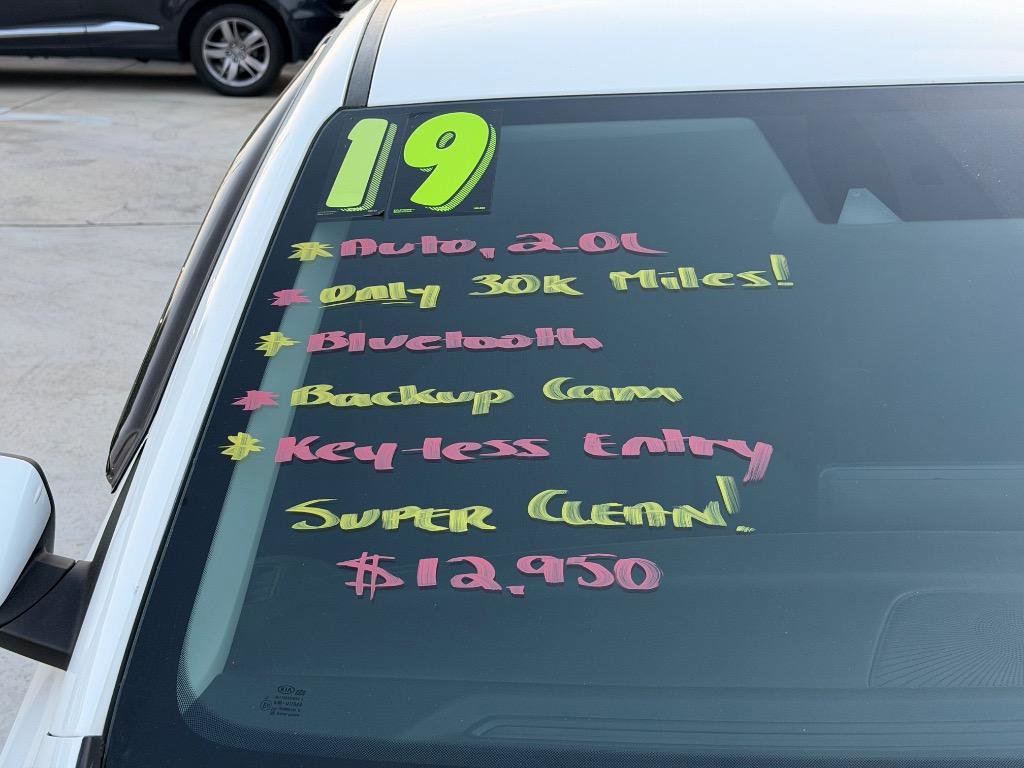 19
* Auto, 2.0L
* Only 30K Miles!
* Bluetooth
* Backup Cam
* Key-less Entry
Super Clean!
$12,950
KIA